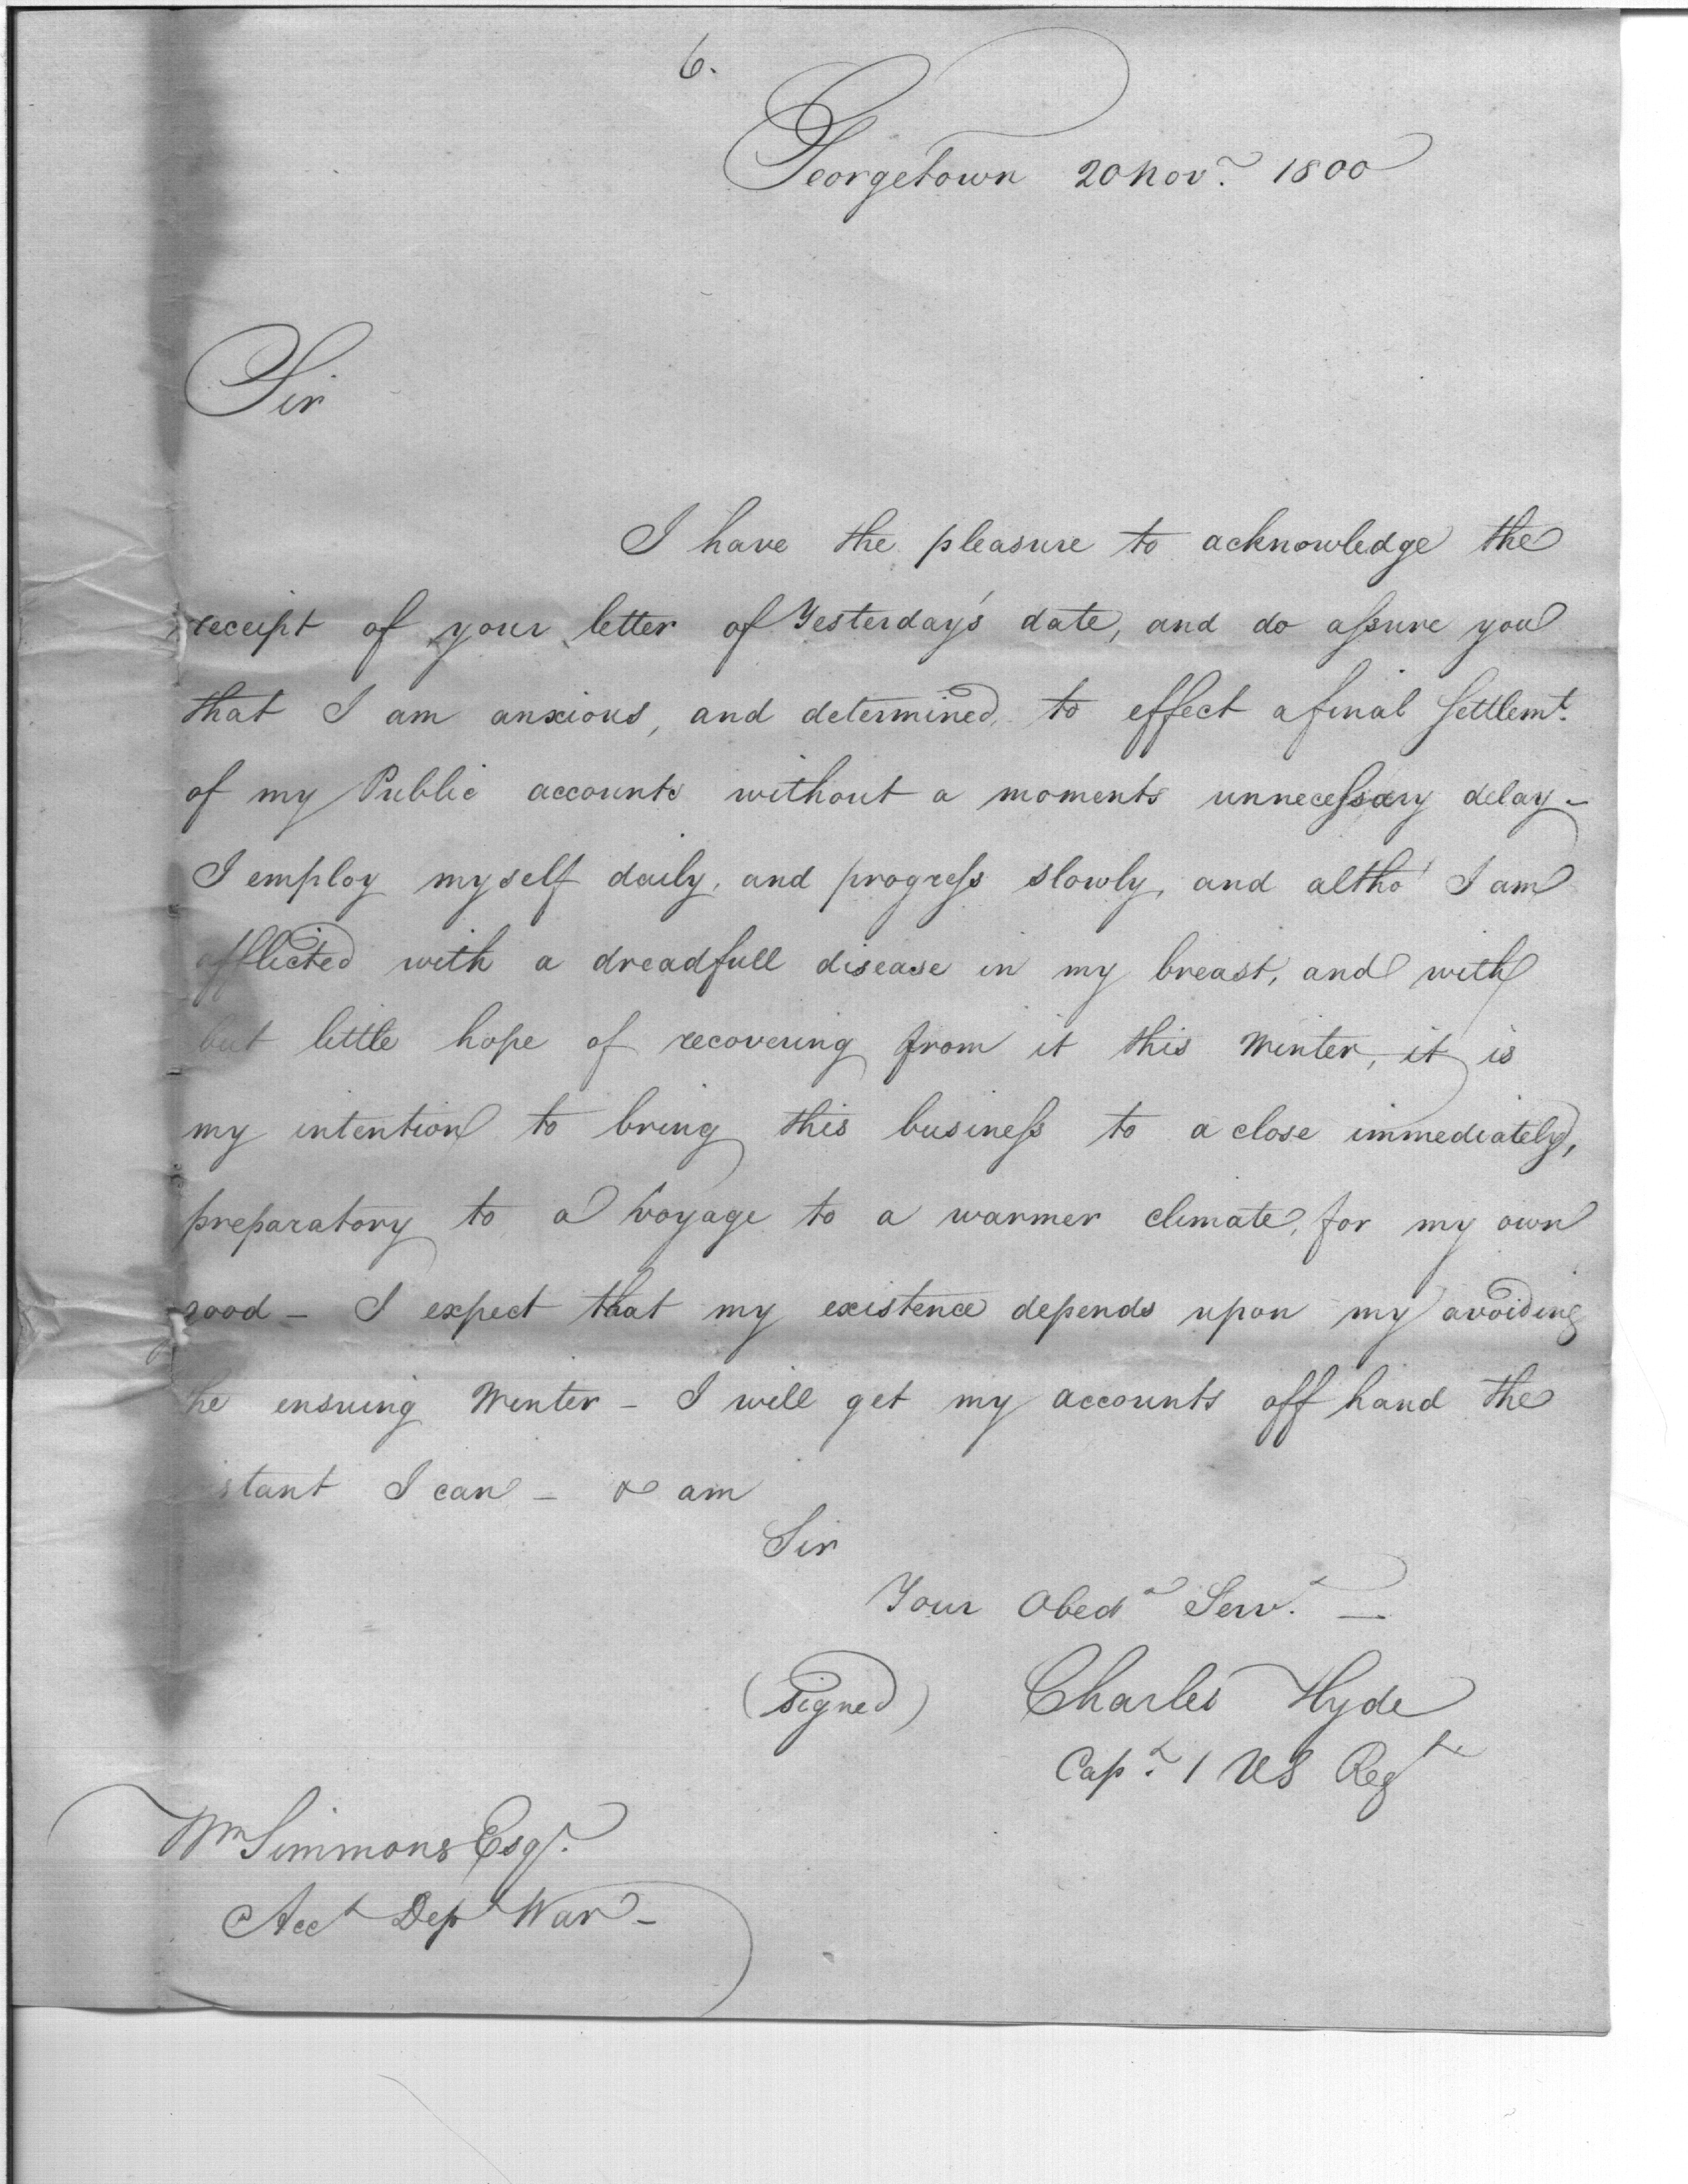 6.
Georgetown 20 Nov.r 1800
Sir
I have the pleasure to acknowledge the
receipt of your letter of Yesterday's date, and do assure you
that I am anxious, and determined, to effect a final Settlemt.
of my Public accounts without a moments unnecessary delay -
I employ myself daily, and progress slowly, and altho' I am
afflicted with a dreadfull disease in my breast, and with
but little hope of recovering from it this Winter, it is
my intention to bring this business to a close immediately,
preparatory to a Voyage to a warmer climate, for my own
good - I expect that my existence depends upon my avoiding
he ensuing Winter - I will get my accounts off hand the
stant I can - & am
Sir
Your Obedt Servt. —
(signed) Charles Hyde
Capt. 1 US Regt
Wm Simmons Esqr.
Acct Dept War -